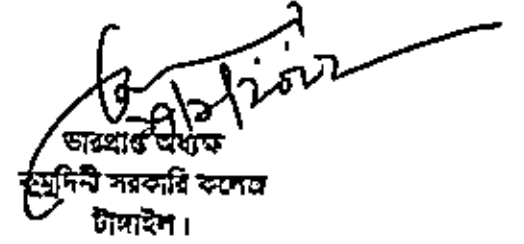 ভারপ্রাপ্ত অধ্যক্ষ
কুমুদিনী সরকারি কলেজ
টাঙ্গাইল।